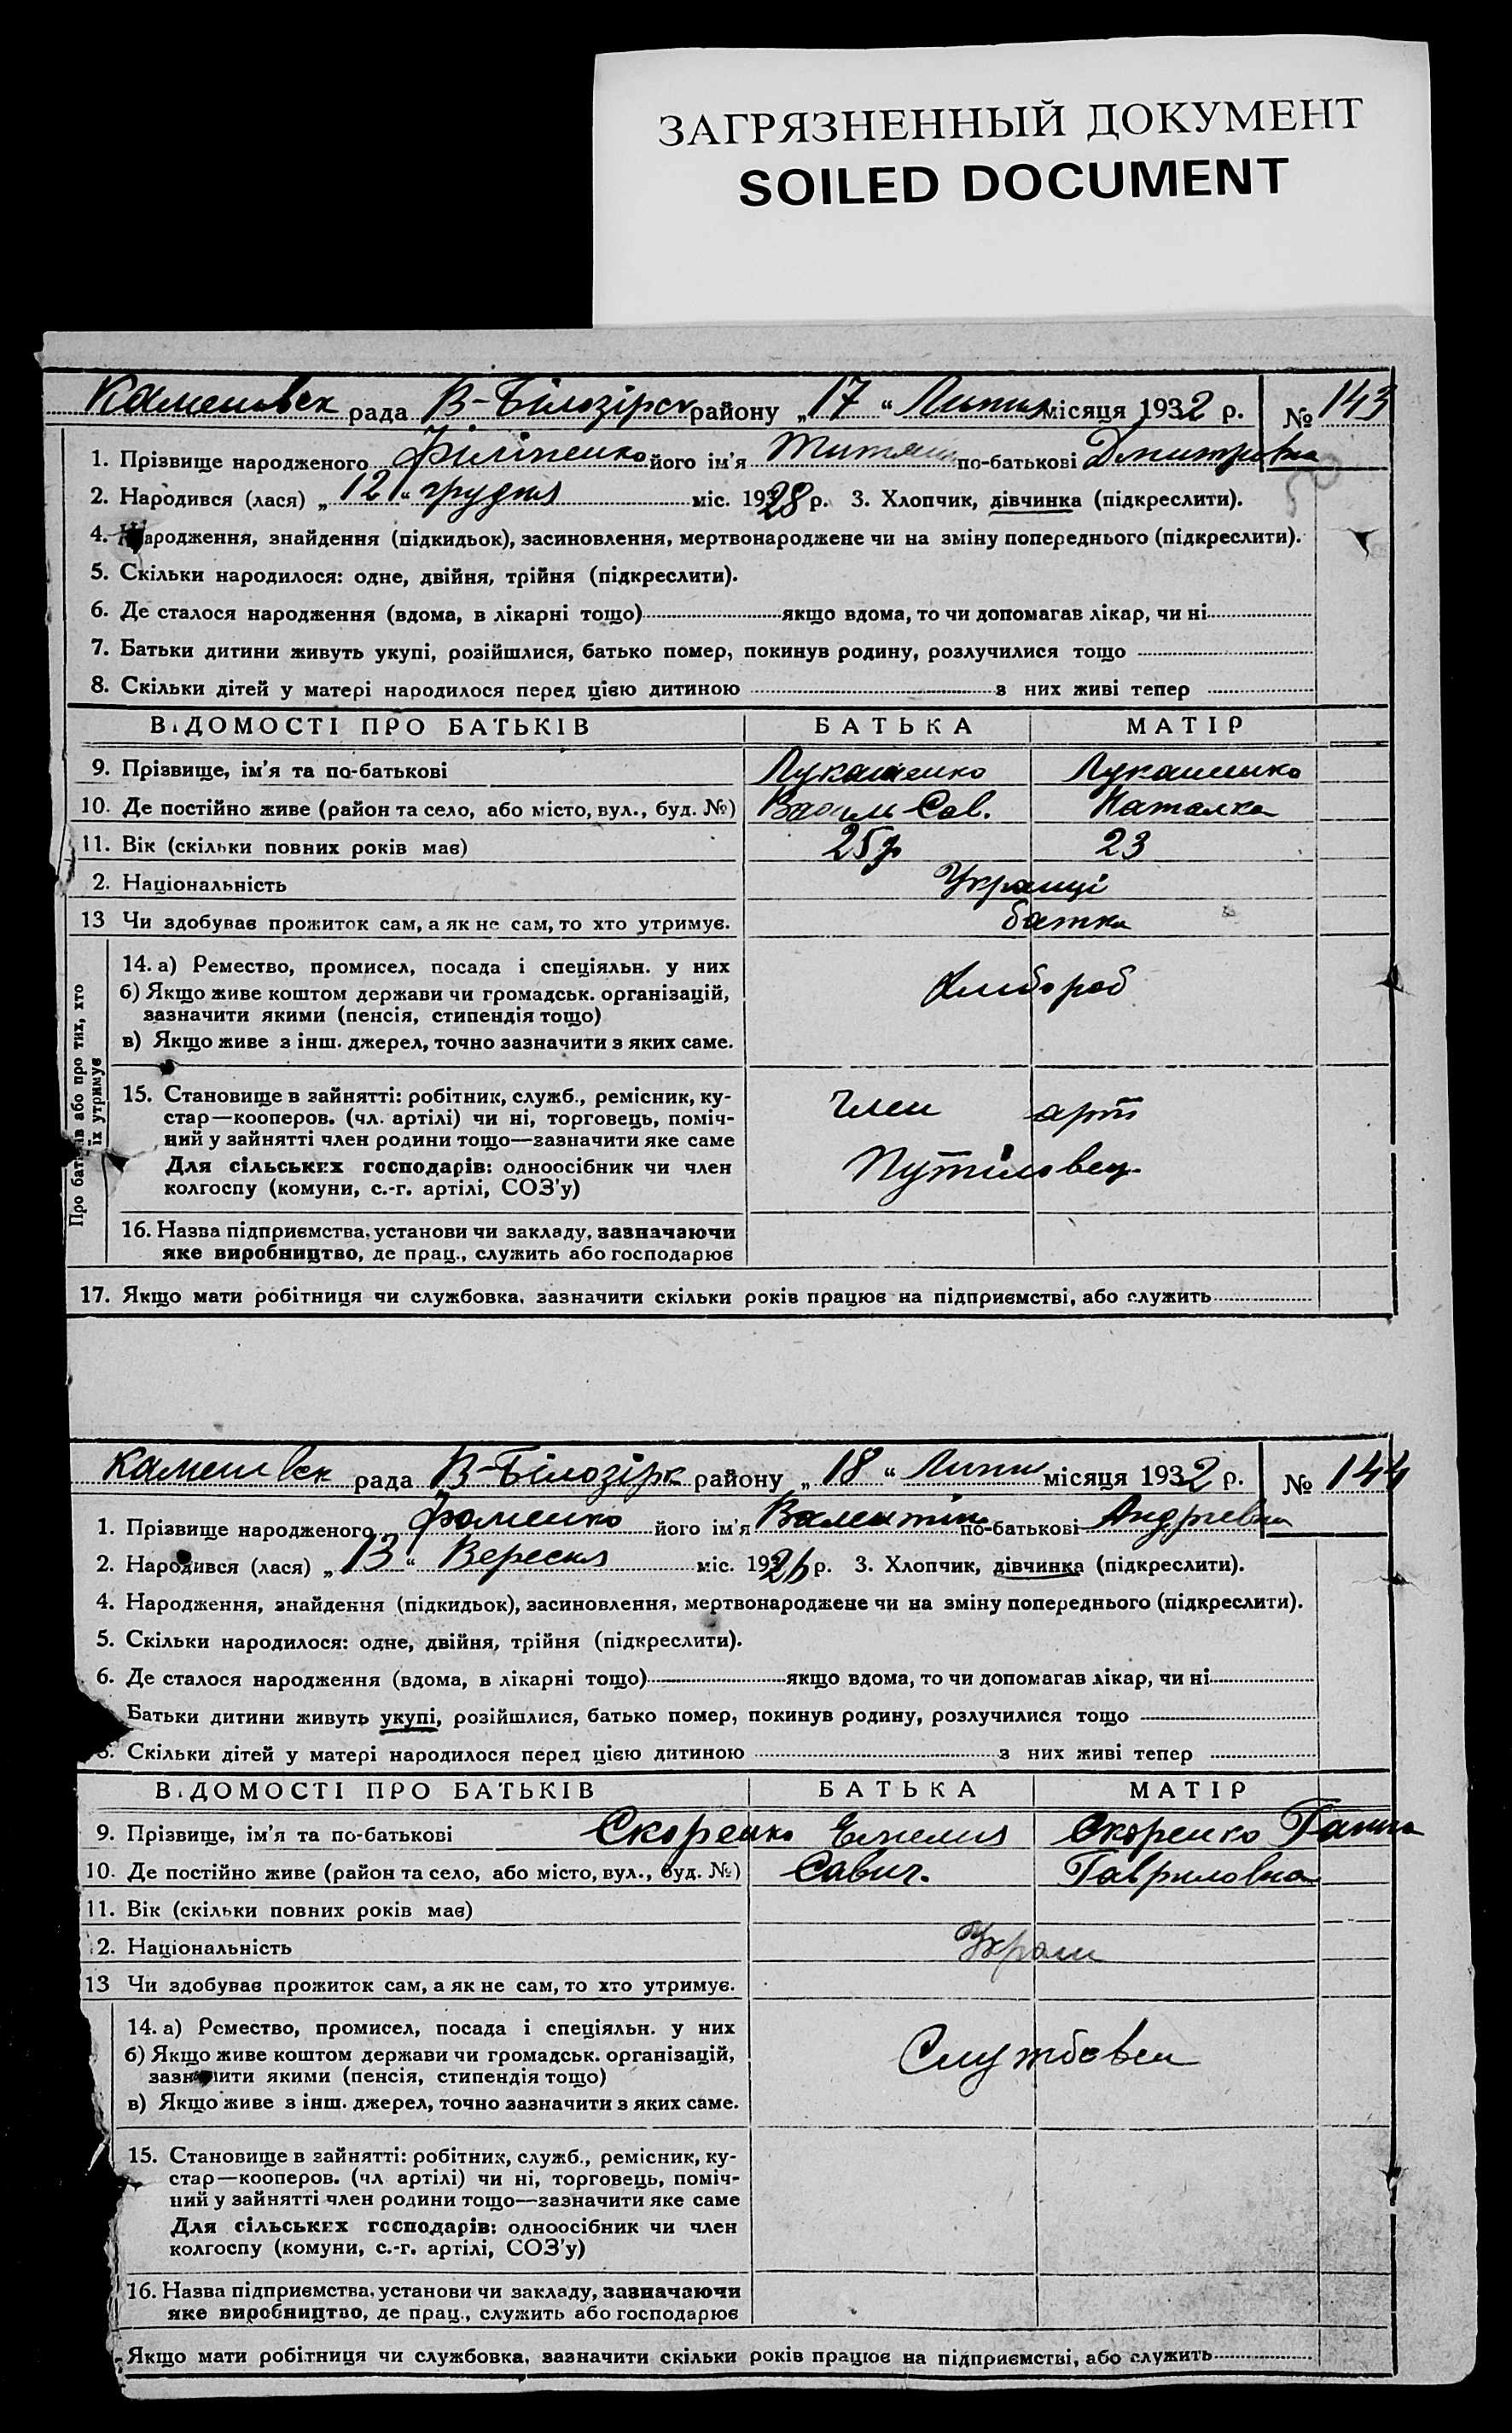 ЗАГРЯЗНЕННЫЙ ДОКУМЕНТ
SOILED DOCUMENT
рада В-Білозірск району „17“ Липня місяця 1932 р. № 143
1. Прізвище народженого Філіпенко його ім’я по-батькові Дмитровна
2. Народився (лася) „12“ грудня міс. 1928 р. 3. Хлопчик, дівчинка (підкреслити).
4. Народження, знайдення (підкидьок), засиновлення, мертвонароджене чи на зміну попереднього (підкреслити).
5. Скільки народилося: одне, двійня, трійня (підкреслити).
6. Де сталося народження (вдома, в лікарні тощо) якщо вдома, то чи допомагав лікар, чи ні
7. Батьки дитини живуть укупі, розійшлися, батько помер, покинув родину, розлучилися тощо
8. Скільки дітей у матері народилося перед цією дитиною з них живі тепер
ВІДОМОСТІ ПРО БАТЬКІВ БАТЬКА МАТІР
9. Прізвище, ім’я та по-батькові Лукашенко Лукашенко
10. Де постійно живе (район та село, або місто, вул., буд. №) Василь Сав. Наталка
11. Вік (скільки повних років має) 25 р 23
2. Національність Українці
13 Чи здобуває прожиток сам, а як не сам, то хто утримує. батьки
Про батьків або про тих, хто їх утримує
14. а) Ремество, промисел, посада і спеціяльн. у них
б) Якщо живе коштом держави чи громадськ. організацій,
зазначити якими (пенсія, стипендія тощо)
Хлибороб
в) Якщо живе з інш. джерел, точно зазначити з яких саме.
15. Становище в зайнятті: робітник, служб., ремісник, ку-
стар—кооперов. (чл. артілі) чи ні, торговець, поміч- Член арт
ний у зайнятті член родини тощо—зазначити яке саме
Для сільських господарів: одноосібник чи член Путіловец
колгоспу (комуни, с.-г. артілі, СОЗ’у)
16. Назва підприємства, установи чи закладу, зазначаючи
яке виробництво, де прац., служить або господарює
17. Якщо мати робітниця чи службовка, зазначити скільки років працює на підприємстві, або служить
рада В-Білозірк району „18“ Липн місяця 1932 р. № 144
1. Прізвище народженого Фоменко його ім’я Валентін по-батькові Андріевна
2. Народився (лася) „13“ Вересня міс. 1926 р. 3. Хлопчик, дівчинка (підкреслити).
4. Народження, знайдення (підкидьок), засиновлення, мертвонароджене чи на зміну попереднього (підкреслити).
5. Скільки народилося: одне, двійня, трійня (підкреслити).
6. Де сталося народження (вдома, в лікарні тощо) якщо вдома, то чи допомагав лікар, чи ні
Батьки дитини живуть укупі, розійшлися, батько помер, покинув родину, розлучилися тощо
8. Скільки дітей у матері народилося перед цією дитиною з них живі тепер
ВІДОМОСТІ ПРО БАТЬКІВ БАТЬКА МАТІР
9. Прізвище, ім’я та по-батькові Скоренко Емелия Скоренко Ганна
10. Де постійно живе (район та село, або місто, вул., буд. №) Савич. Гавриловна
11. Вік (скільки повних років має)
2. Національність Украін
13 Чи здобуває прожиток сам, а як не сам, то хто утримує.
14. а) Ремество, промисел, посада і спеціяльн. у них
б) Якщо живе коштом держави чи громадськ. організацій, Службовец
зазначити якими (пенсія, стипендія тощо)
в) Якщо живе з інш. джерел, точно зазначити з яких саме.
15. Становище в зайнятті: робітник, служб., ремісник, ку-
стар—кооперов. (чл артілі) чи ні, торговець, поміч-
ний у зайнятті член родини тощо—зазначити яке саме
Для сільських господарів: одноосібник чи член
колгоспу (комуни, с.-г. артілі, СОЗ’у)
16. Назва підприємства, установи чи закладу, зазначаючи
яке виробництво, де прац., служить або господарює
Якщо мати робітниця чи службовка, зазначити скільки років працює на підприємстві, або служить